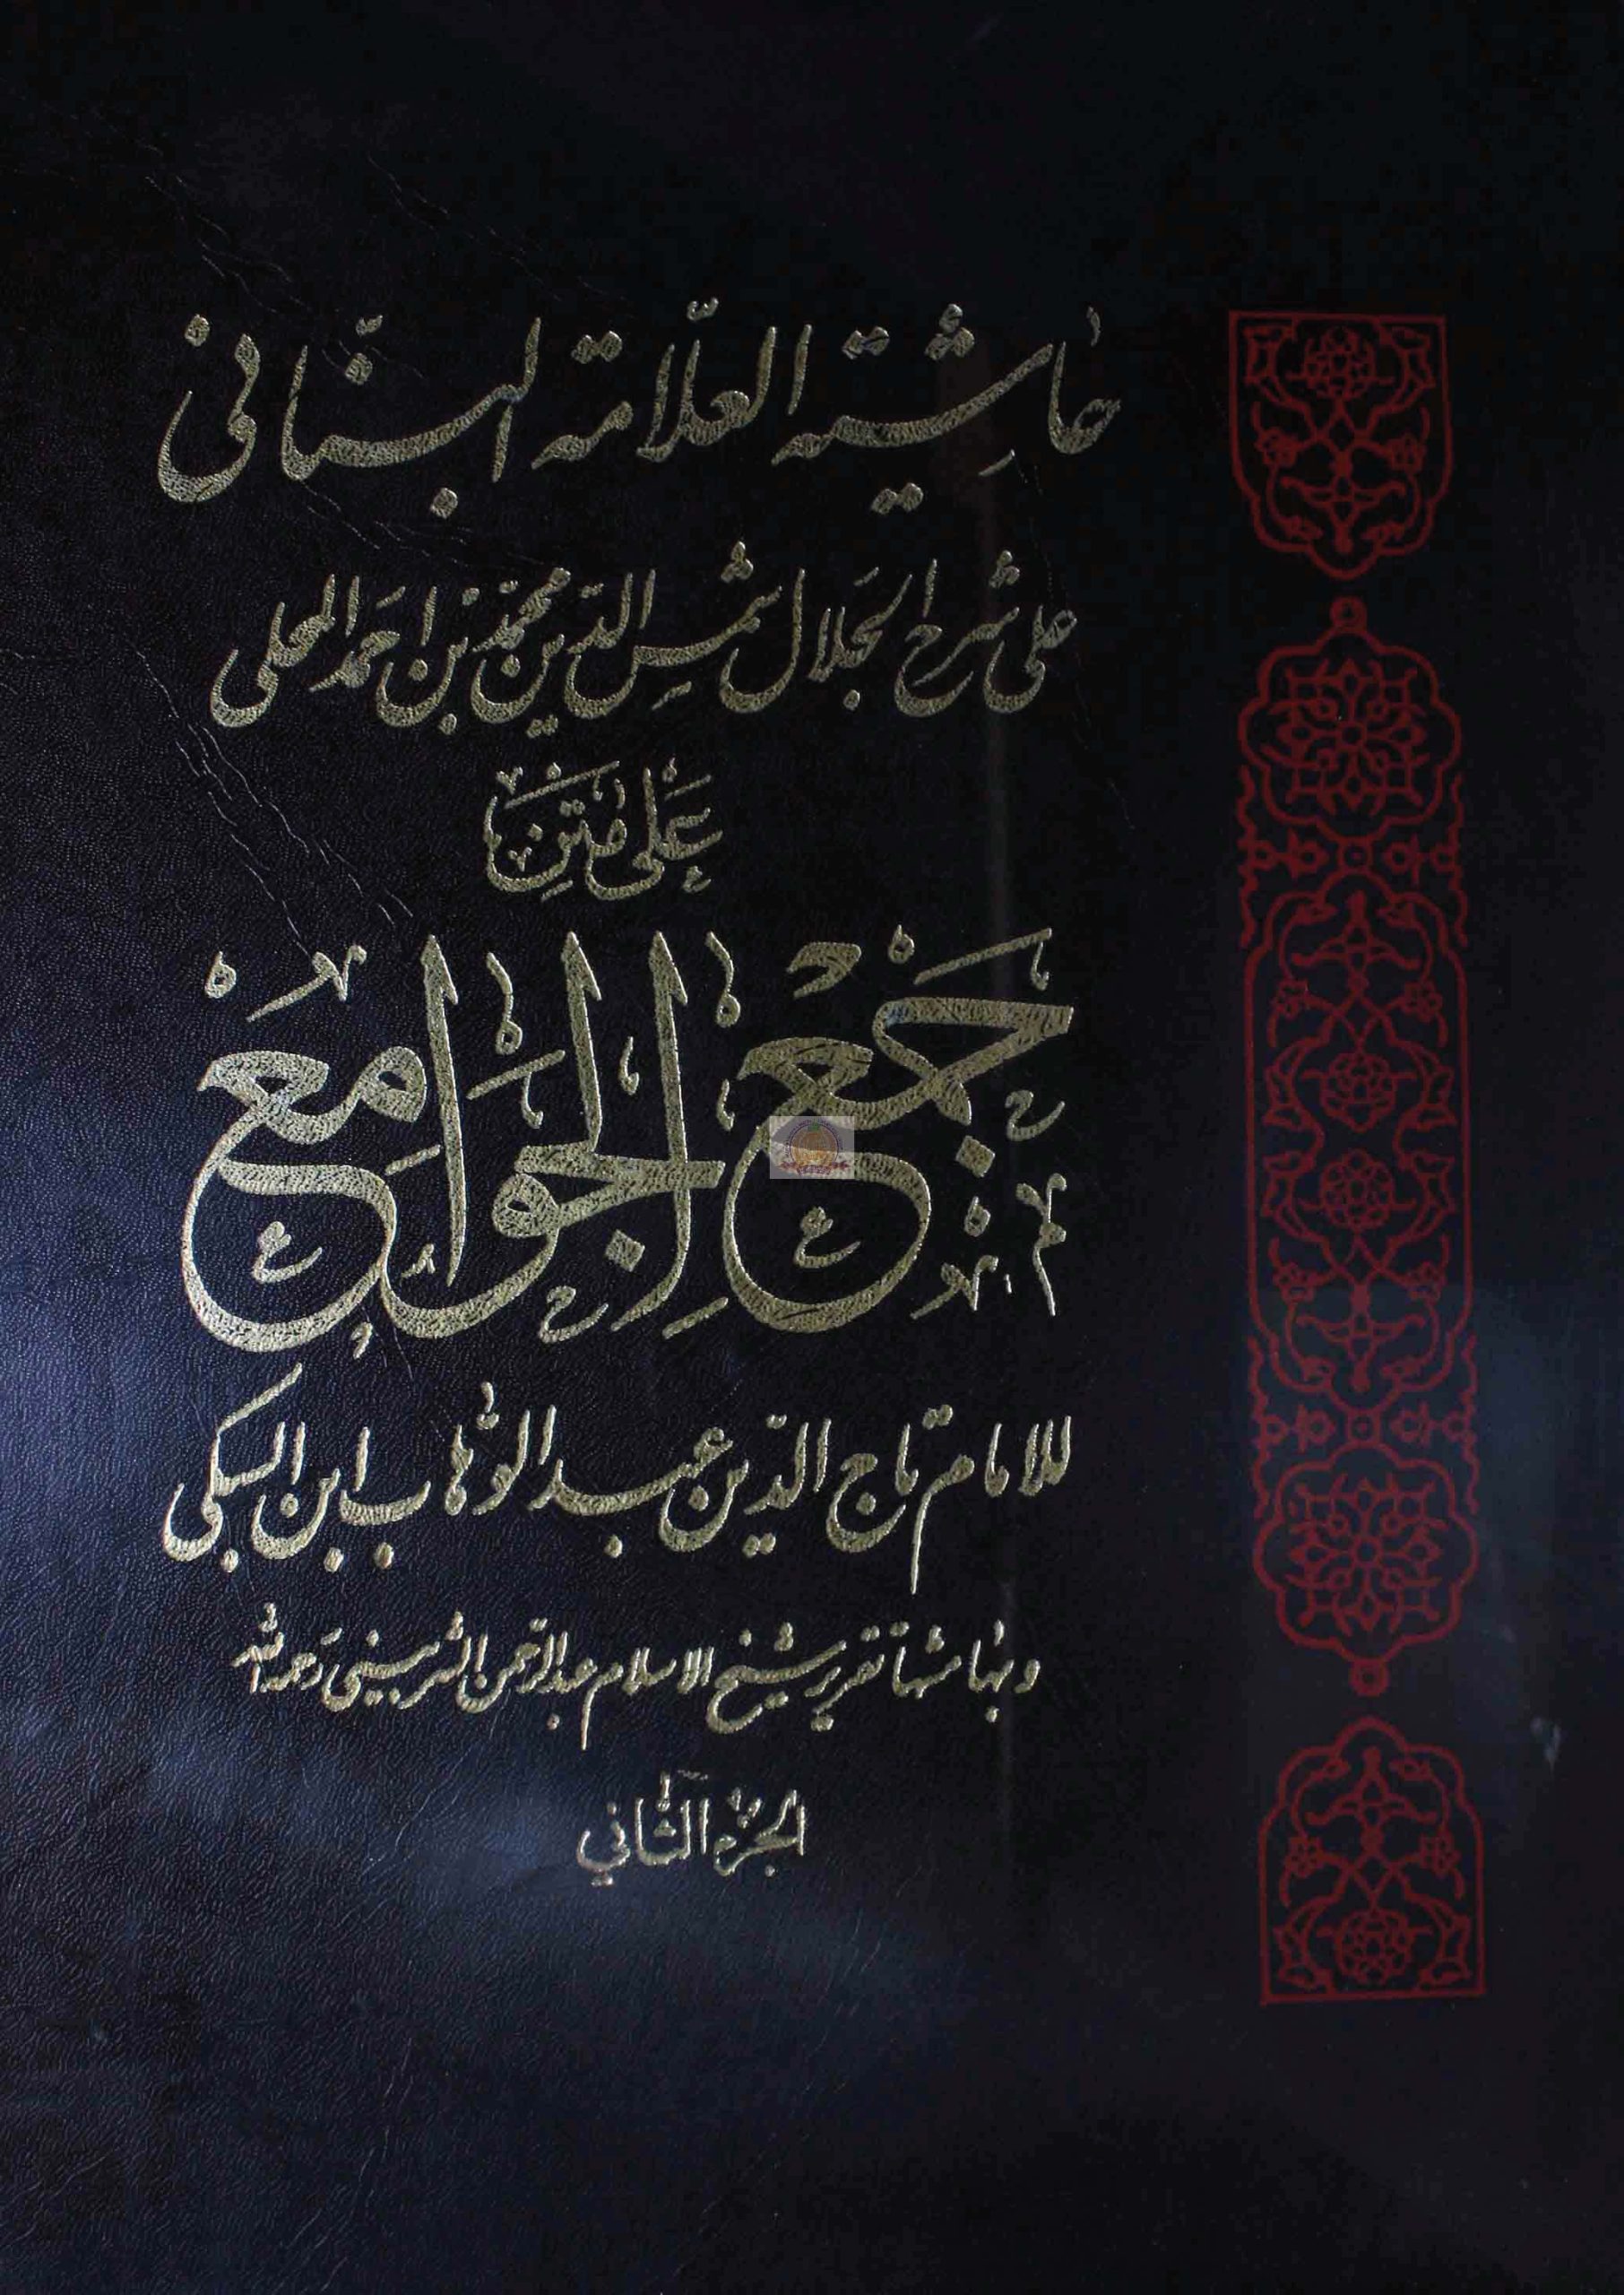 حاشية العلّامة البنّاني
على شرح الجلال شمس الدّين محمّد بن احمد المحلى
عَلى مَتَنِ
جَمْعِ الجَوَامِعْ
للامام تاج الدّين عبد الوّهاب ابن السبكى
وبهامشها تقرير شيخ الاسلام عبد الرّحمن الشربينى رَحمه الله
الجُزء الثَّاني